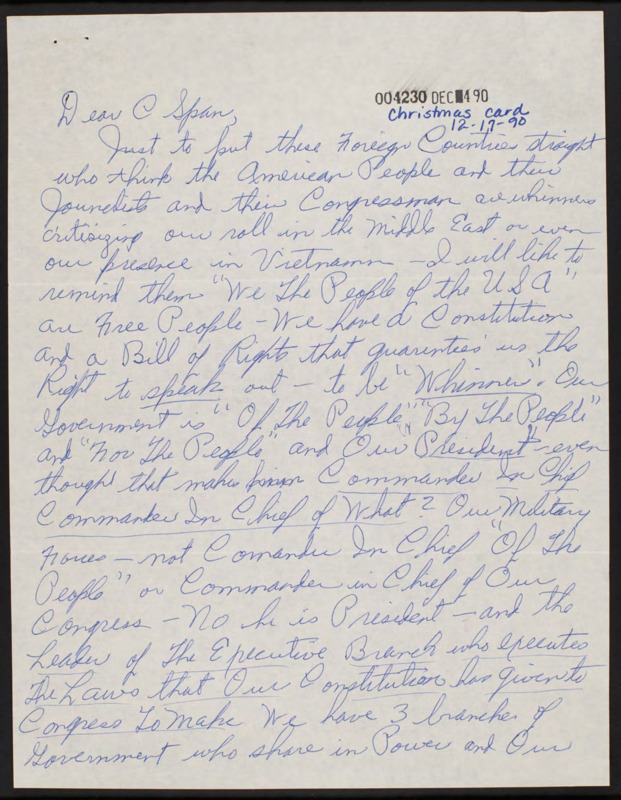 004230 DEC 4 90
Christmas card
12-17-90
Dear C Span,
Just to put these Foreign Countries straight
who think the American People and their
Journalists and their Congressman are whinners
critisizing our roll in the Middle East or even
our presence in Vietnamn - I will like to
remind them "We The People of the USA"
are Free People - We have a Constitution
and a Bill of Rights that guarenties us the
Right to speak out - to be "Whinner". Our
Government is "Of The People" "By The People"
and "For The People" and Our "President" - even
thought that makes him Commander In Chief
Commander In Chief of What? Our Military
Forces - not Comander In Chief "Of The
People" or Commander in Chief of Our
Congress - No he is President - and the
Leader of The Executive Branch who executes
The Laws that Our Constitution has given to
Congress To Make We have 3 branches of
Government who share in Power and Our